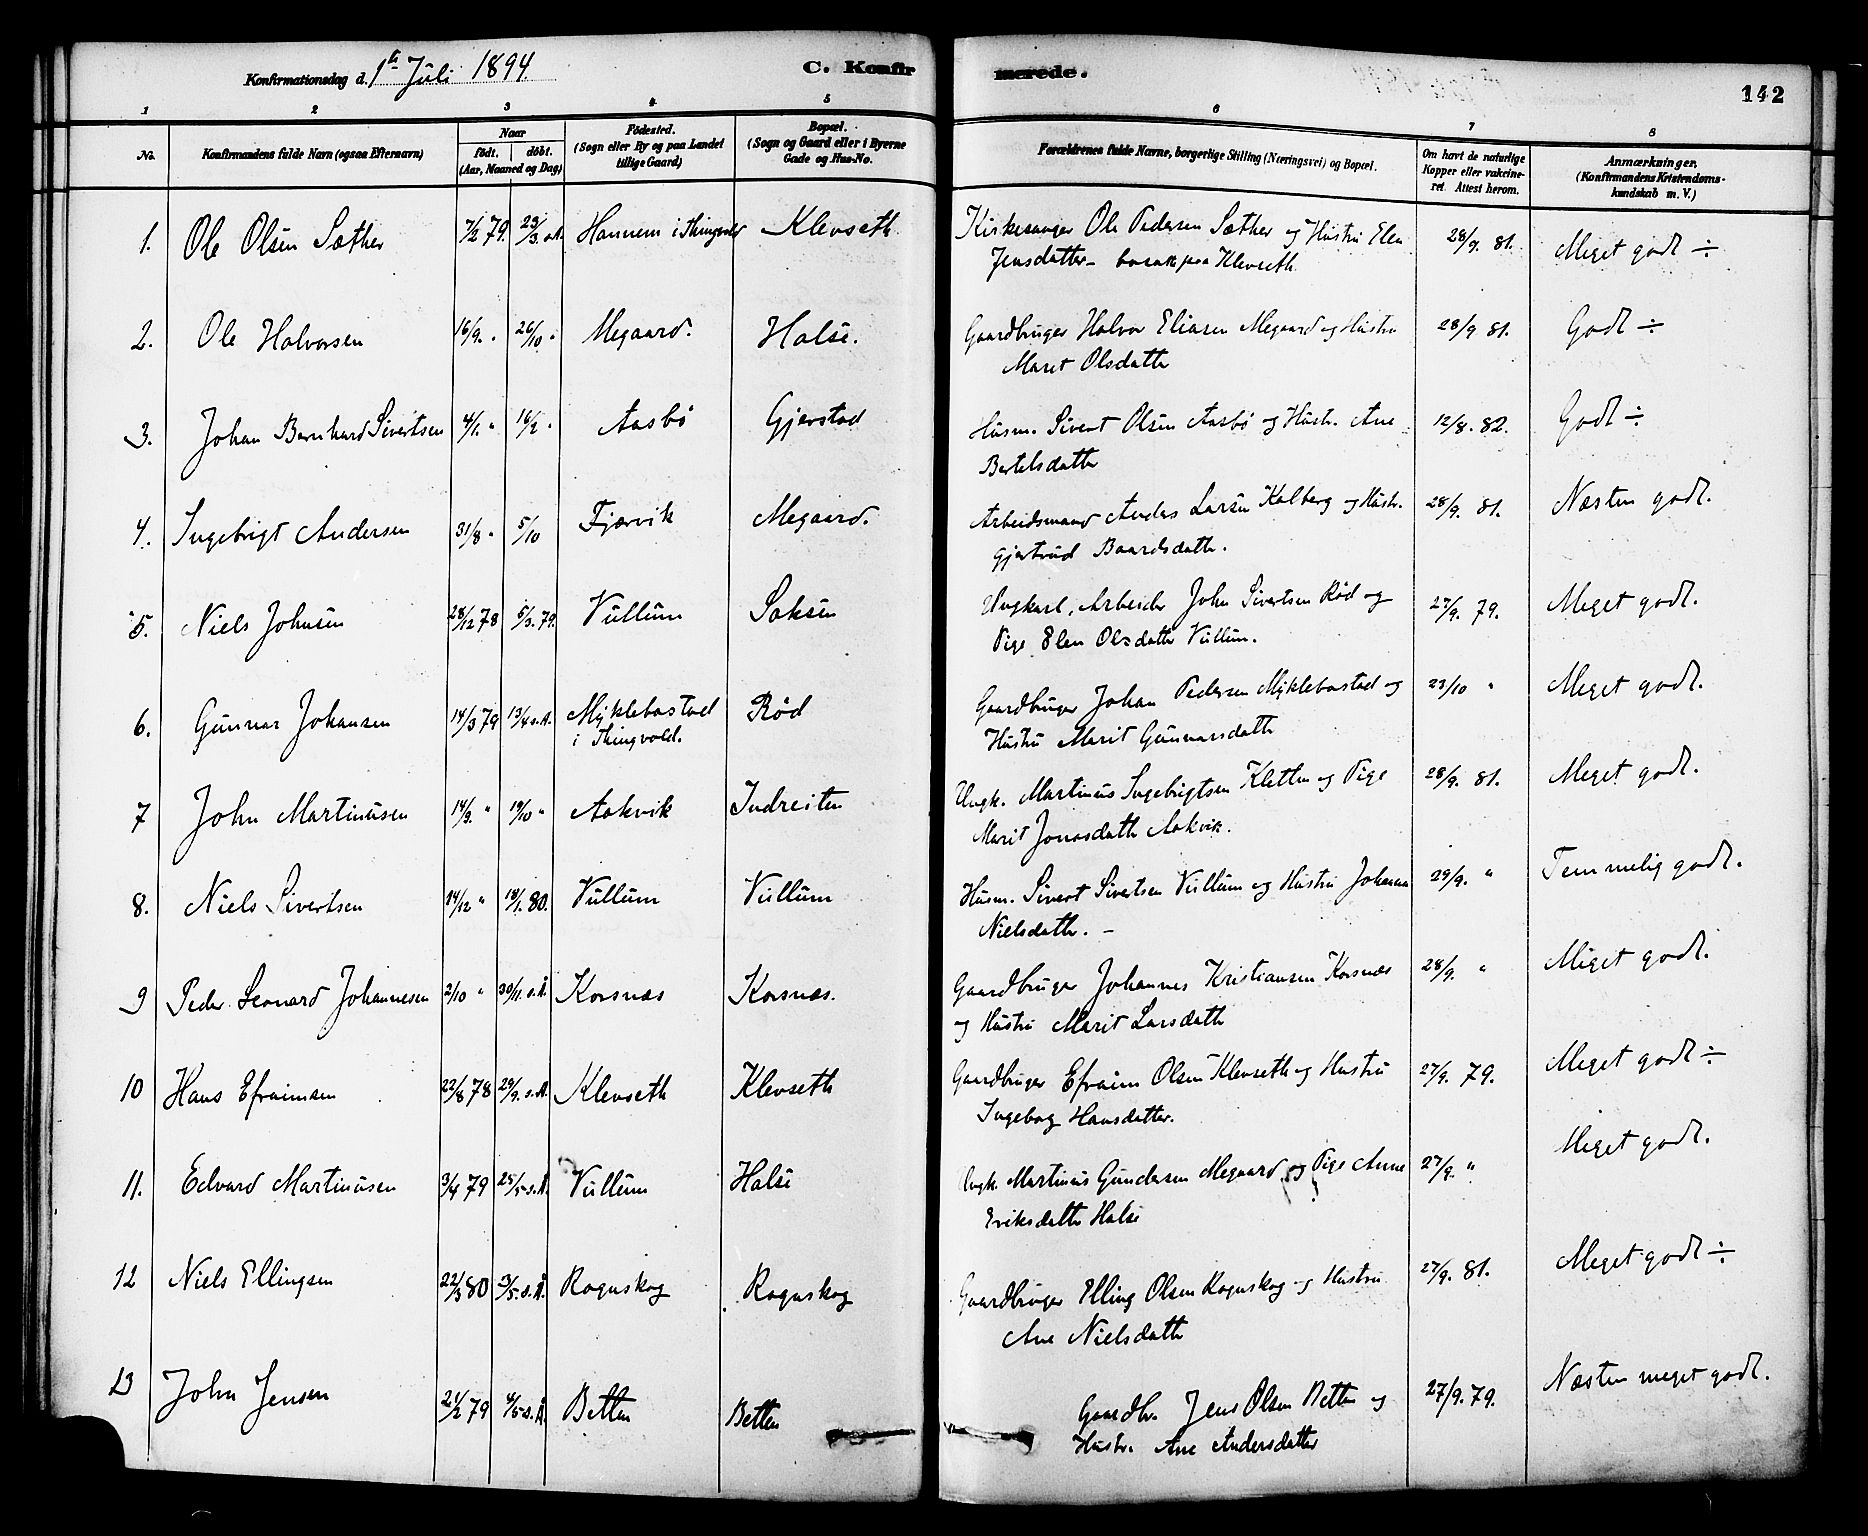 Konfirmationsdag d. 1ste Juli 1894. C. Konfirmerede. 142
1 2 3 4 5 6 7 8
No. Konfirmandens fulde Navn (ogsaa Efternavn) Naar født. døbt. (Aar, Maaned og Dag) Födested. (Sogn eller By og paa Landet tillige Gaard) Bopæl. (Sogn og Gaard eller i Byerne Gade og Hus-No. Forældrenes fulde Navne, borgerlige Stilling (Næringsvei) og Bopæl. Om havt de naturlige Kopper eller vakcineret. Attest herom. Anmærkninger. (Konfirmandens Kristendomskundskab m. V.)
1. Ole Olsen Sæther 7/2 79. 23/3. s.A. Hannem i Thingvold Klevseth Kirkesanger Ole Pedersen Sæther og Hustru Elen 28/9. 81. Meget godt ÷
Jensdatter - bosatt paa Klevseth
2. Ole Halvorsen 16/9. " 26/10 " Megaard. Halse. Gaardbruger Halvor Eliasen Megaard og Hustru 28/9 81. Godt ÷
Maret Olsdattr
3. Johan Bernhard Sivertsen 4/1. " 16/2 " Aasbö Gjerstad Husm. Sivert Olsen Aasbö og Hustr. Ane 12/8. 82. Godt ÷
Bertelsdattr
4. Ingebrigt Andersen 31/8 " 5/10 Fjærvik Megaard. Arbeidsmand Anders Larsen Kalberg og Hustr. 28/9. 81. Næsten godt.
Gjertrud Baardsdattr.
5. Niels Johnsen 28/12 78 5/3. 79. Vullum Saksen Ungkarl, Arbeider John Sivertsen Röd og 27/9. 79. Meget godt.
Pige Elen Olsdattr Vullum.
6. Gunnar Johansen 14/3 79 13/4 s.A. Myklebostad Röd Gaardbruger Johan Pedersen Myklebostad og 23/10 " Meget godt.
i Thingvold. Hustru Marit Gunnarsdattr
7 John Martinusen 14/9. " 19/10 " Aakvik Indreiten Ungk. Martinus Ingebrigtsen Kletten og Pige 28/9. 81. Meget godt.
Marit Jonasdattr Aakvik.
8. Niels Sivertsen 14/12 " 18/1. 80. Vullum Vullum Husm. Sivert Sivertsen Vullum og Hustru Johanna 29/9. " Temmelig godt.
Nielsdattr. -
9 Peder Leonard Johannesen 2/10 " 30/11. s.A. Korsnæs Korsnæs. Gaardbruger Johannes Kristiansen Korsnæs 28/9. " Meget godt.
og Hustru Marit Larsdattr
10 Hans Efraimsen 22/8 78 29/9. s.A. Klevseth Klevseth Gaardbruger Efraim Olsen Klevseth og Hustru 27/9. 79. Meget godt ÷
Ingebog Hansdatter.
11. Edvard Martinusen 3/4 79 25/5 s.A. Vullum Halse Ungk. Martinus Gundersen Megaard og Pige Anne 27/9. " Meget godt.
Eriksdattr Halse
12 Niels Ellingsen 22/3 80 3/5. s.A. Rognskog Rognskog Gaardbruger Elling Olsen Rognskog og Hustru 27/9. 81. Meget godt ÷
Ane Nielsdattr
13 John Jensen 21/2 79 4/5 s.A. Betten Betten Gaardbr. Jens Olsen Betten og 27/9. 79. Næsten meget godt.
Hustr. Ane Andersdatter